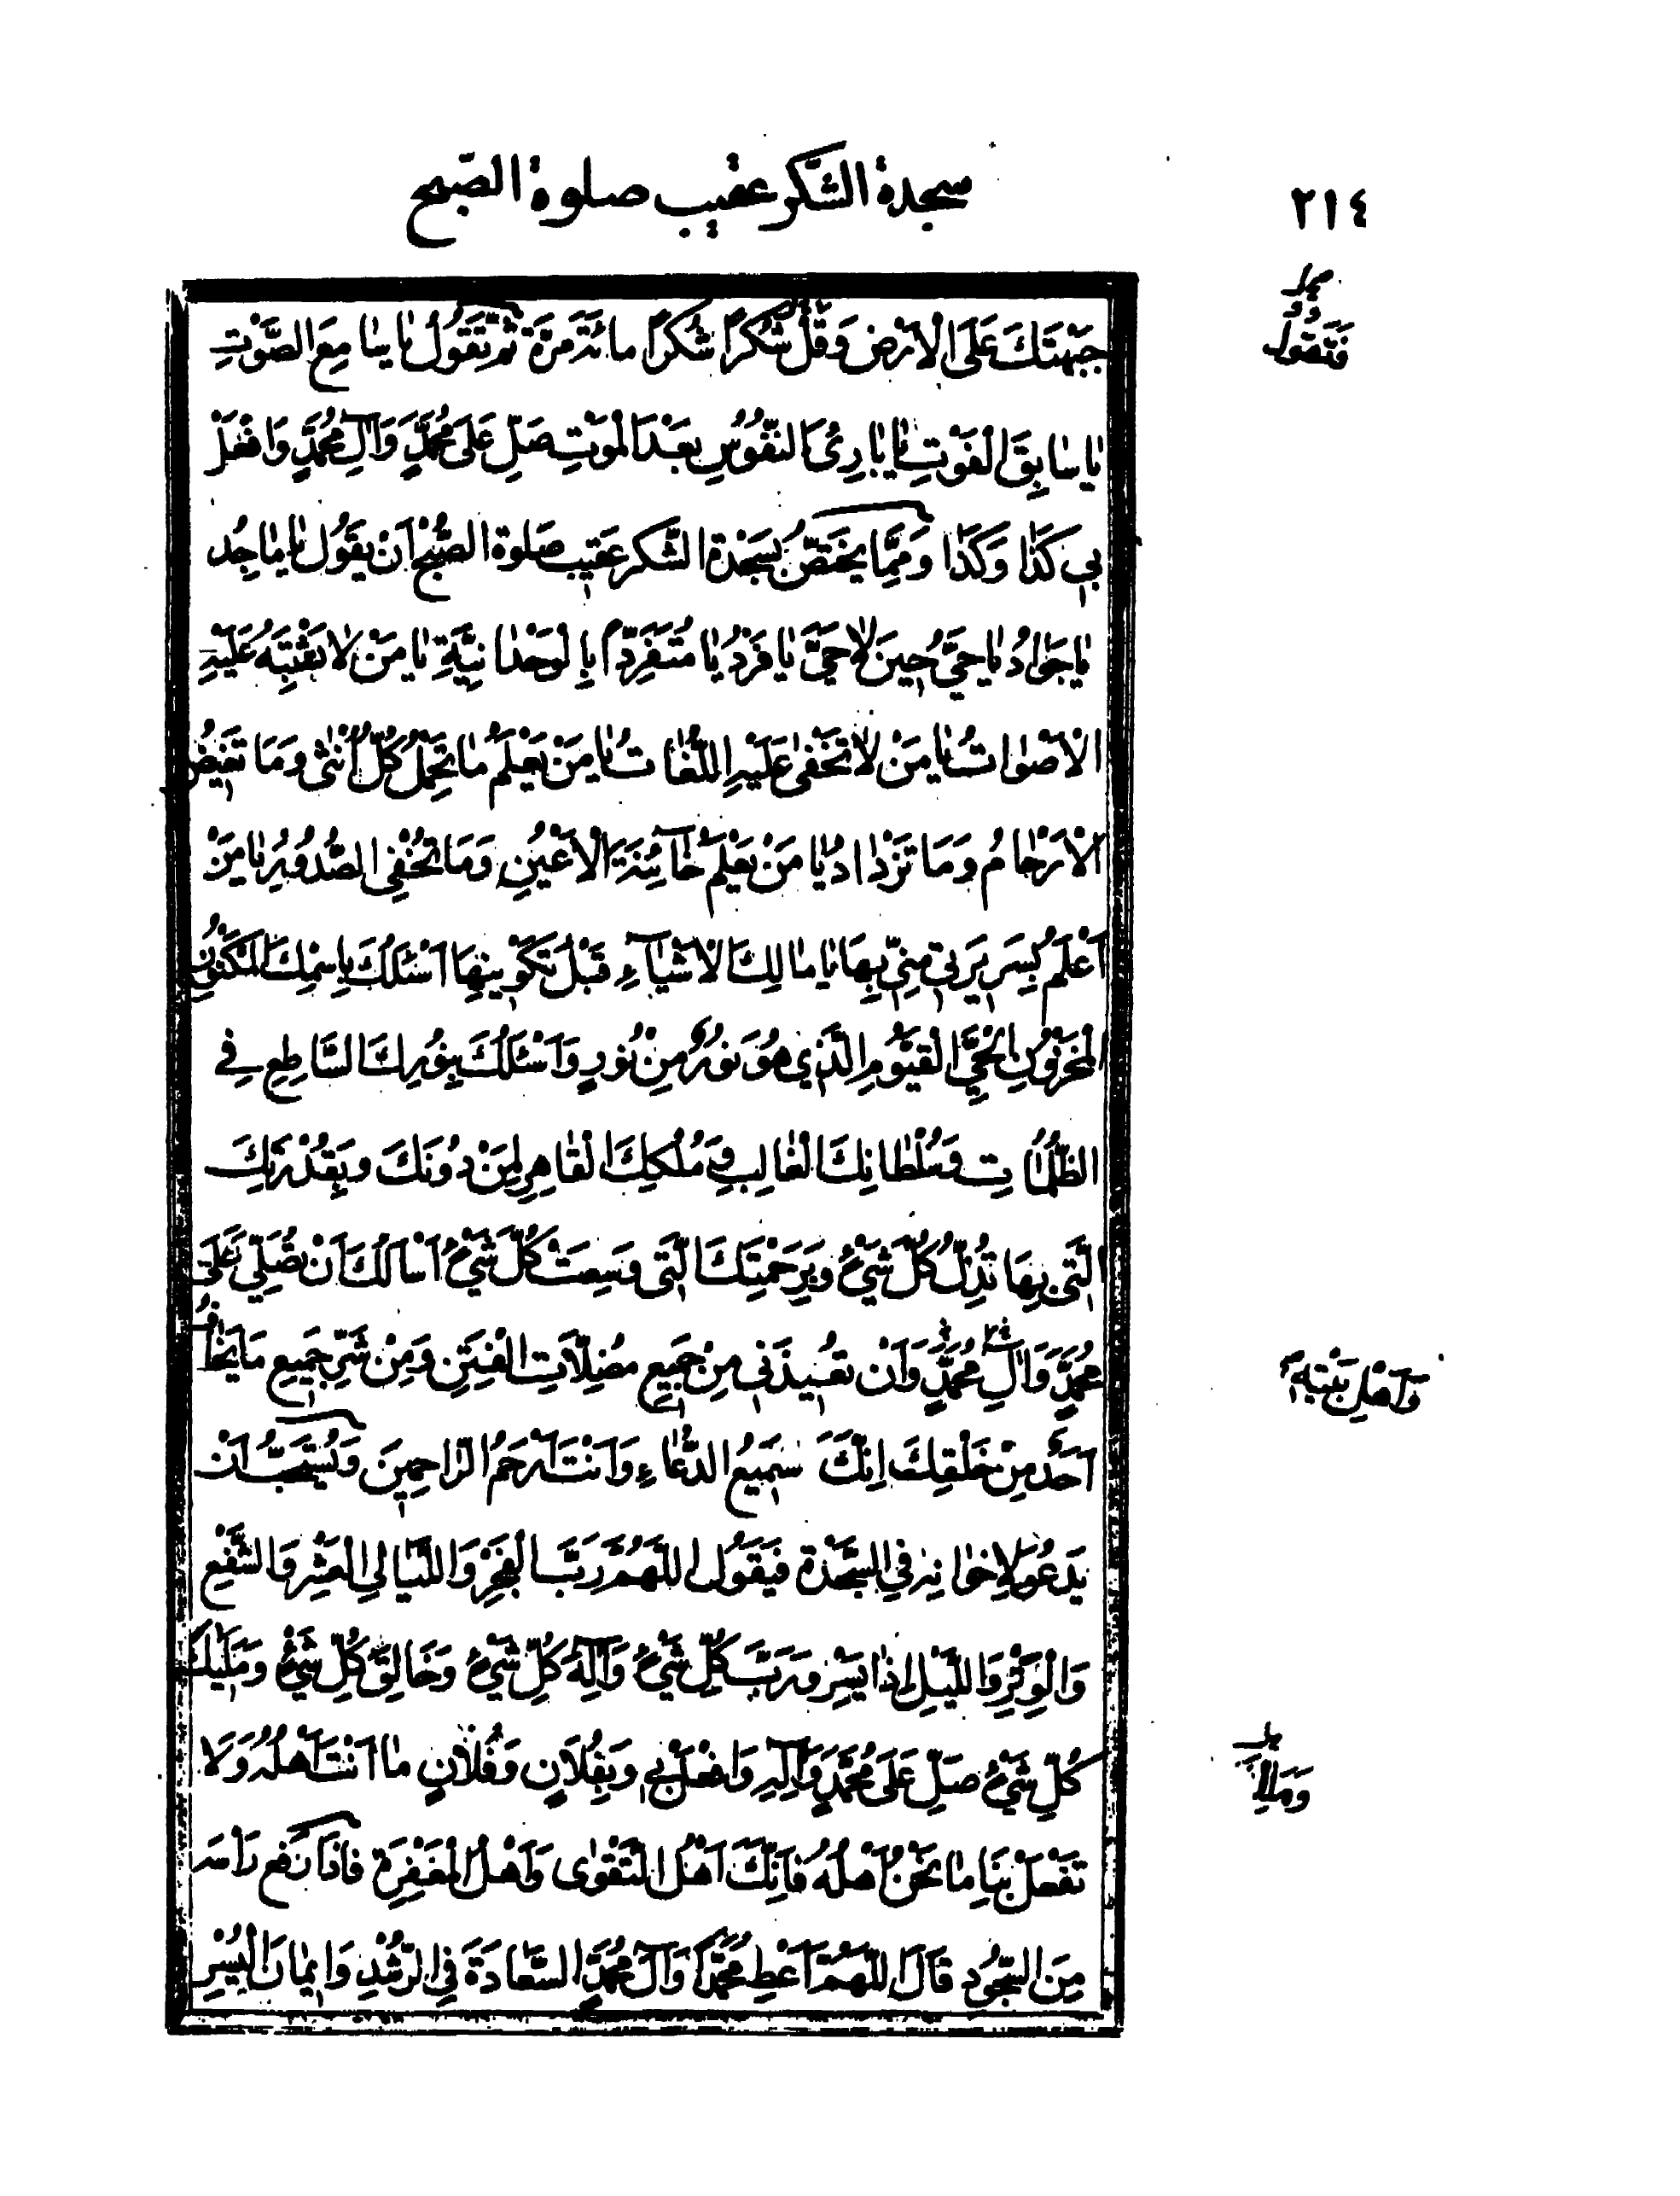 سجدة الشّكر عقيب صلوة الصّبح
٢١٤
فَتَقُولُ
جَبْهَتَكَ عَلَى الْاَرْضِ وَقُلْ شُكْراً شُكْراً مائَةَ مَرَّةٍ ثُمَّ تَقُولُ يٰا سٰامِعَ الصَّوْتِ
يٰا سٰابِقَ الْفَوْتِ يٰا بٰارِئَ النُّفُوسِ بَعْدَ الْمَوْتِ صَلِّ عَلىٰ مُحَمَّدٍ وَآلِ مُحَمَّدٍ وَافْعَلْ
بى كَذٰا وَكَذٰا وَمِمَّا يَخْتَصُّ بِسَجْدَةِ الشُّكْرِ عَقيبَ صَلوةِ الصُّبْحِ اَنْ يَقُولَ يٰا مٰاجِدُ
يٰا جَوٰادُ يٰا حَيُّ حِينَ لٰا حَيَّ يٰا فَرْدُ يٰا مُتَفَرِّداً بِالْوَحْدٰانِيَّةِ يٰا مَنْ لٰا تَشْتَبِهُ عَلَيْهِ
الْاَصْوٰاتُ يٰا مَنْ لٰا تَخْفىٰ عَلَيْهِ اللُّغٰاتُ يٰا مَنْ يَعْلَمُ مٰا تَحْمِلُ كُلُّ اُنْثىٰ وَمَا تَغيضُ
الْاَرْحٰامُ وَمَا تَزْدٰادُ يٰا مَنْ يَعْلَمُ خٰآئِنَةَ الْاَعْيُنِ وَمَا تُخْفِى الصُّدُورُ يٰا مَنْ
اَعْلَمُ بِسَريرَتى مِنّى بِهَا يٰا مٰالِكَ الْاَشْيٰآءِ قَبْلَ تَكْوينِهَا اَسْئَلُكَ بِاسْمِكَ الْمَكْنُونِ
الْمَخْزُونِ الْحَيِّ الْقَيُّومِ الَّذي هُوَ نُورٌ مِنْ نُورٍ وَاَسْئَلُكَ بِنُورِكَ السَّاطِعِ فِي
الظُّلُمٰاتِ وَسُلْطٰانِكَ الْغٰالِبِ وَمُلْكِكَ الْقٰاهِرِ لِمَنْ دُونَكَ وَبِقُدْرَتِكَ
الَّتى بِهَا تُذِلُّ كُلَّ شَيْءٍ وَبِرَحْمَتِكَ الَّتى وَسِعَتْ كُلَّ شَيْءٍ اَسْاَلُكَ اَنْ تُصَلِّيَ عَلىٰ
مُحَمَّدٍ وَآلِ مُحَمَّدٍ وَاَنْ تُعيذَنى مِنْ جَميعِ مُضِلّاتِ الْفِتَنِ وَمِنْ شَرِّ جَميعِ مَا يَخٰافُ
وَاَهْلِ بَيْتِهِ
اَحَدٌ مِنْ خَلْقِكَ اِنَّكَ سَميعُ الدُّعٰاءِ وَاَنْتَ اَرْحَمُ الرّاحِمينَ وَيُسْتَحَبُّ اَنْ
يَدْعُوَ لِاِخْوٰانِهِ فِي السَّجْدَةِ فَيَقُولُ اللّهُمَّ رَبَّ الْفَجْرِ وَاللَّيٰالِي الْعَشْرِ وَالشَّفْعِ
وَالْوَتْرِ وَاللَّيْلِ اِذٰا يَسْرِ وَرَبَّ كُلِّ شَيْءٍ وَآلِهَ كُلِّ شَيْءٍ وَخَالِقَ كُلِّ شَيْءٍ وَمَليكَ
كُلِّ شَيْءٍ صَلِّ عَلىٰ مُحَمَّدٍ وَآلِهِ وَافْعَلْ بى وَبِفُلَانٍ وَفُلَانٍ مٰا اَنْتَ اَهْلُهُ وَلَا
تَفْعَلْ بِنَا مٰا نَحْنُ اَهْلُهُ فَاِنَّكَ اَهْلُ التَّقْوٰى وَاَهْلُ الْمَغْفِرَةِ فَاِذَا رَفَعَ رَأْسَهُ
مِنَ السُّجُودِ قَالَ اللّهُمَّ اَعْطِ مُحَمَّداً وَآلَ مُحَمَّدٍ السَّعَادَةَ فِي الرُّشْدِ وَايمٰانَ الْيُسْرِ